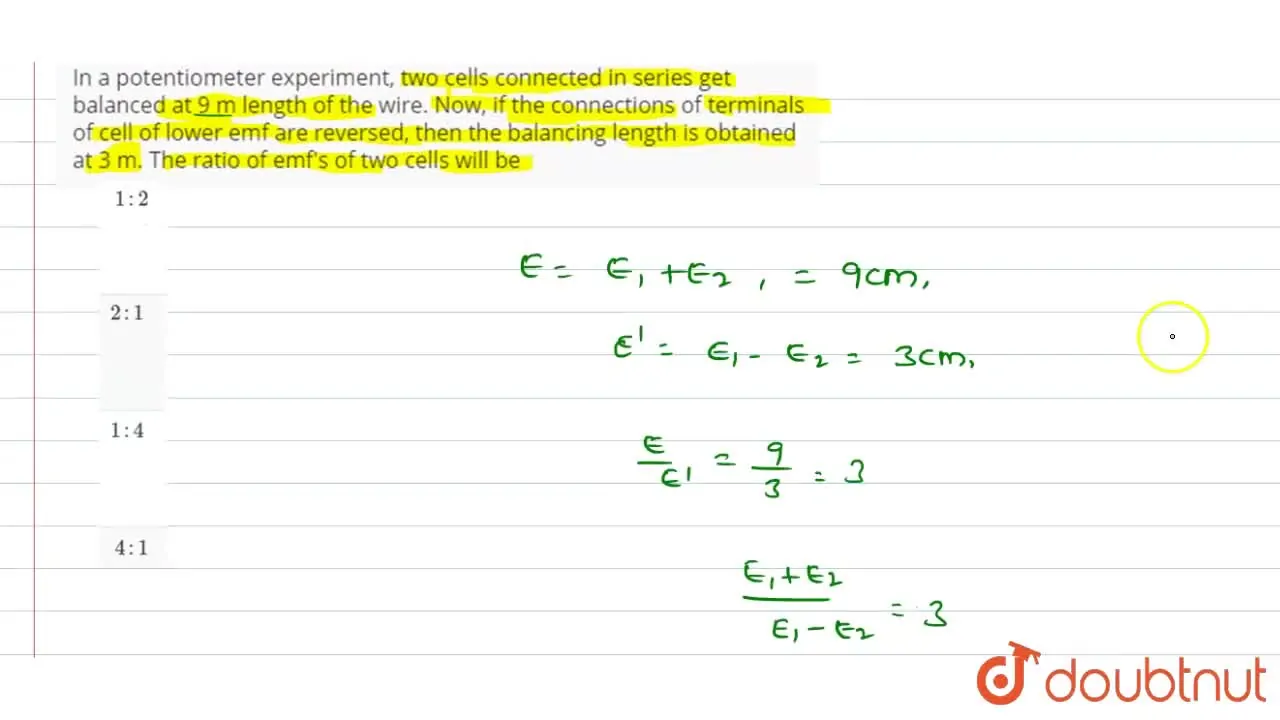 In a potentiometer experiment, two cells connected in series get
balanced at 9 m length of the wire. Now, if the connections of terminals
of cell of lower emf are reversed, then the balancing length is obtained
at 3 m. The ratio of emf's of two cells will be
1:2
E = E1 + E2, = 9cm,
2:1
E' = E1 - E2 = 3cm,
1:4
E/E' = 9/3 = 3
4:1
E1+E2/E1-E2 = 3
doubtnut